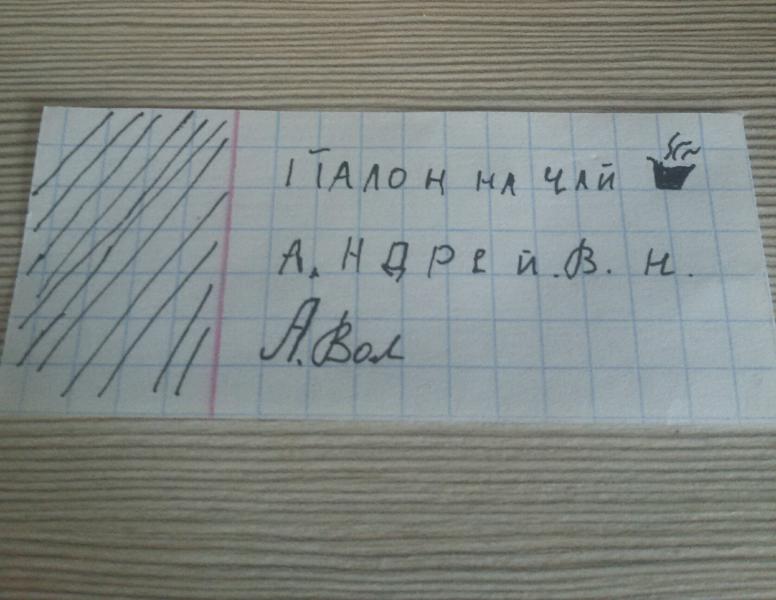 1 ТАЛОН НА ЧАЙ
А.НДРЕЙ.В.Н.
А.Вол